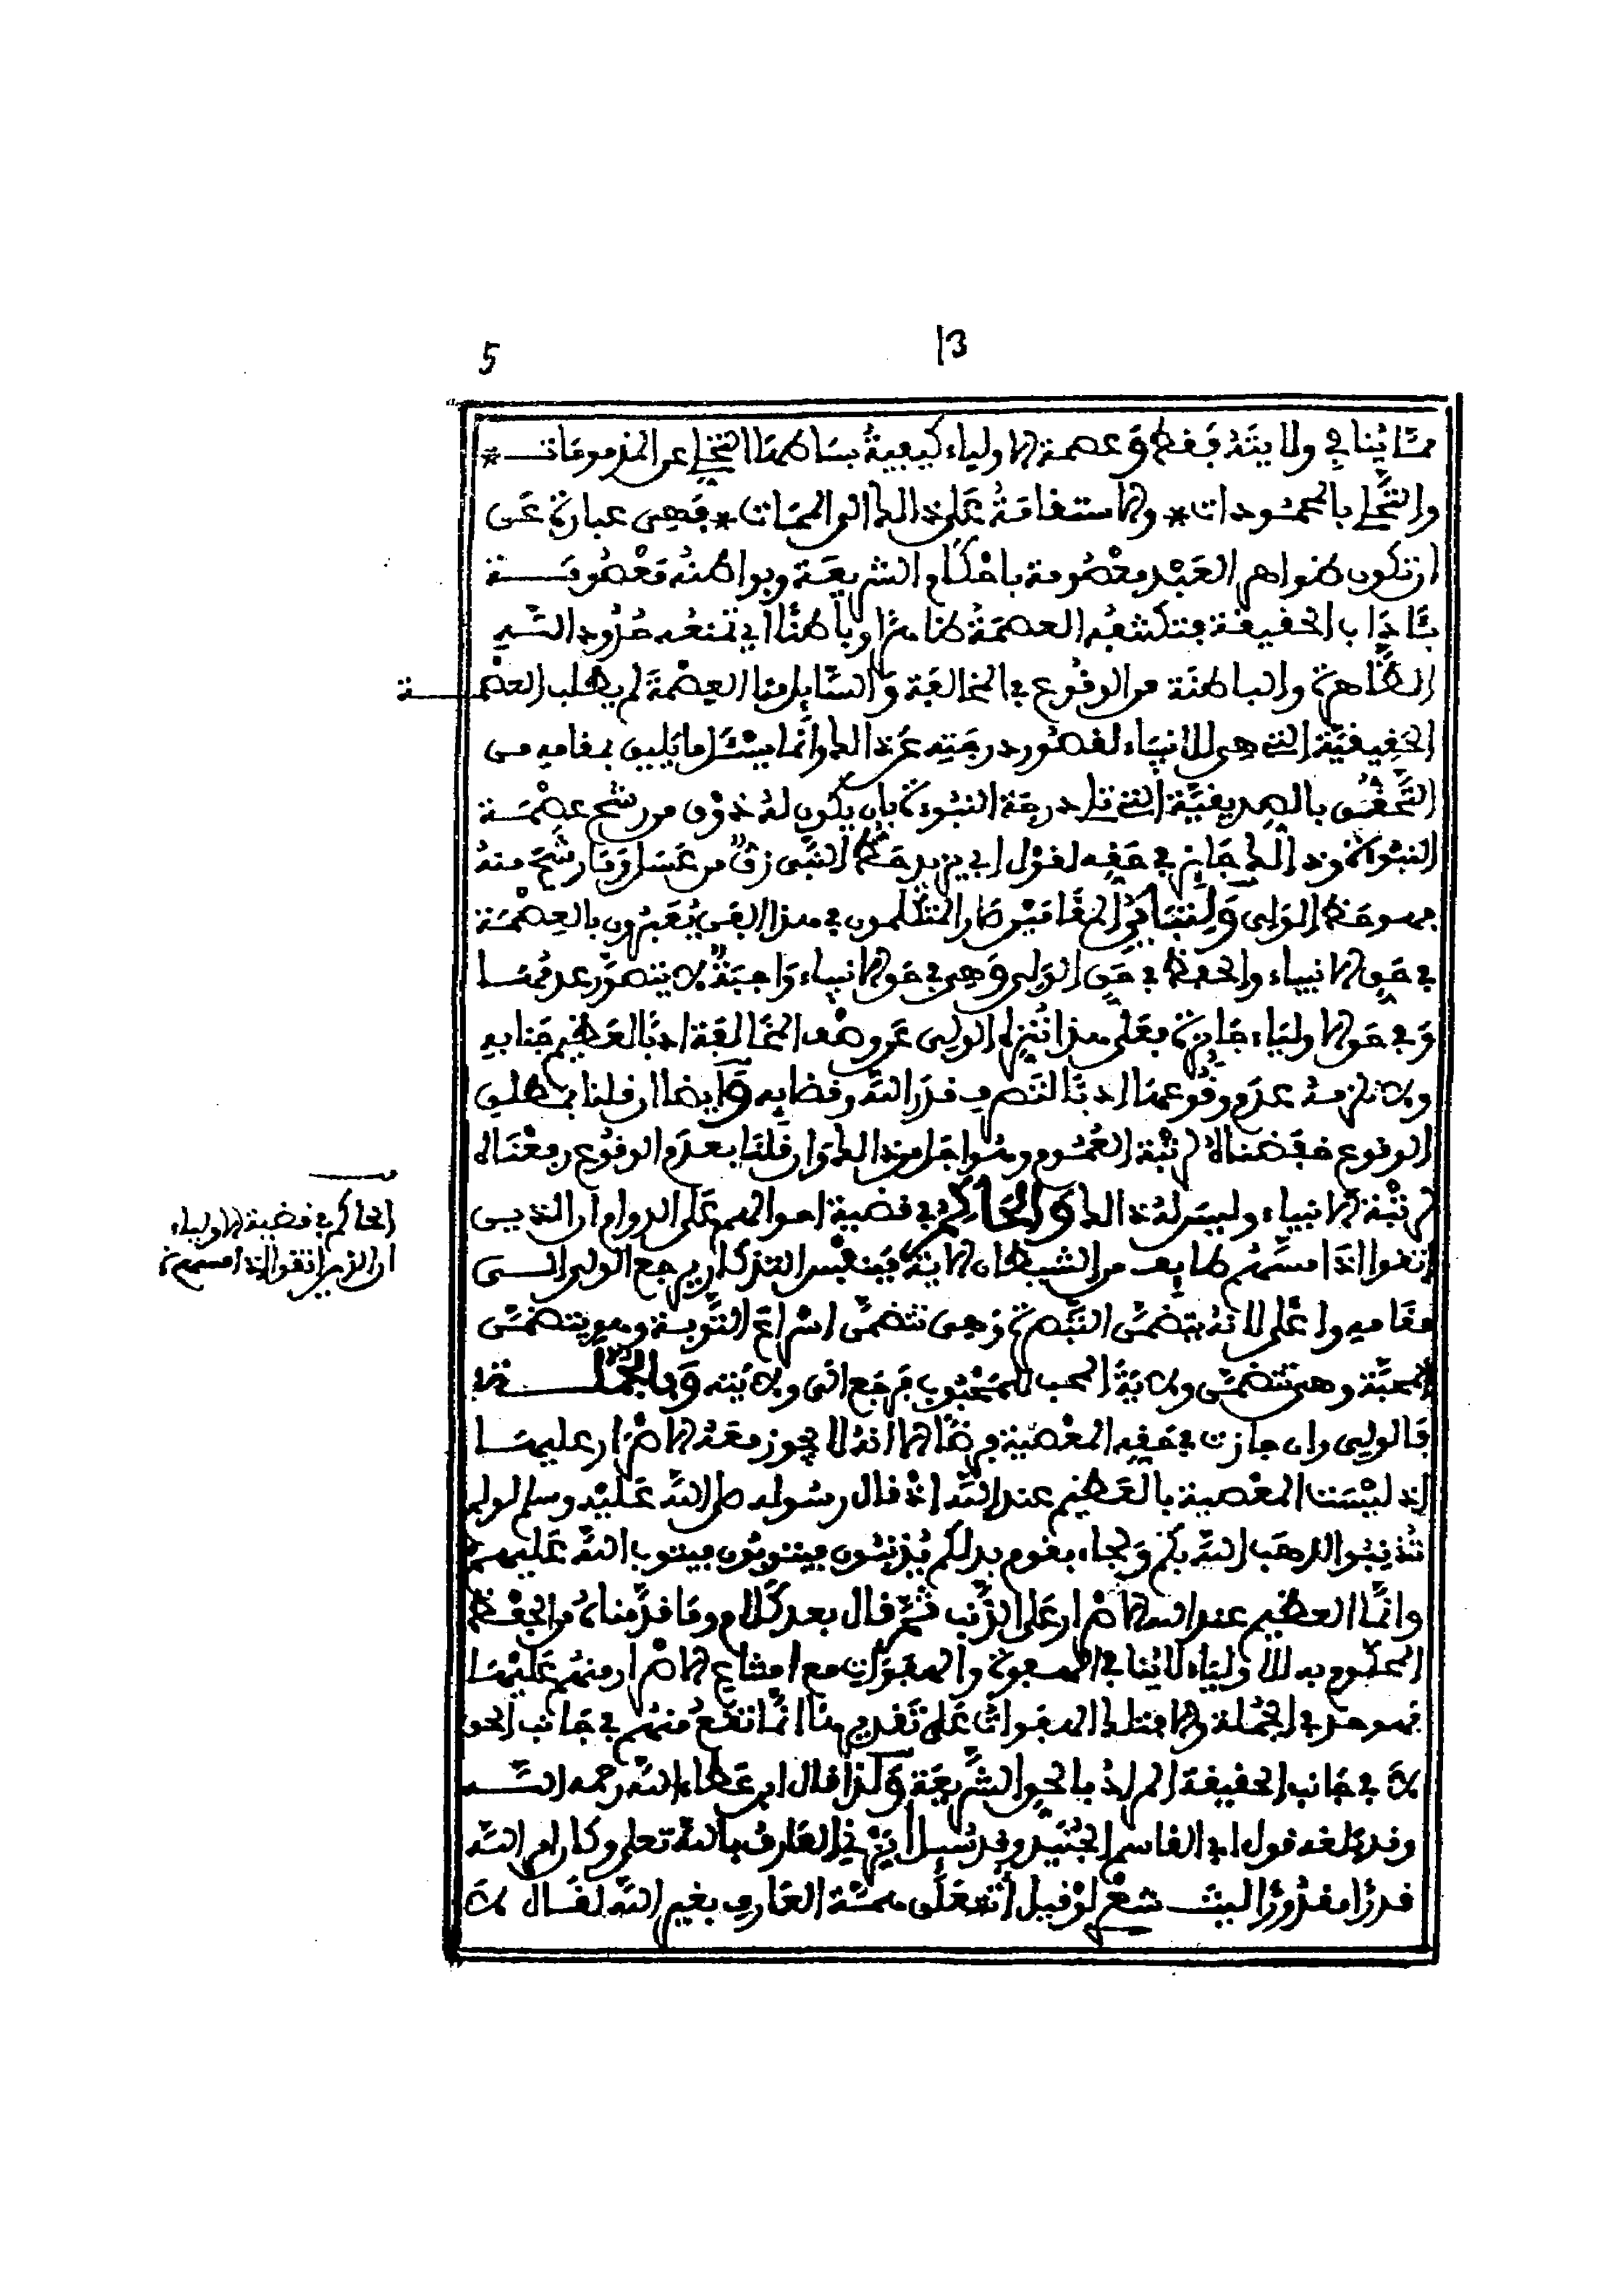 13
5
مما ينافي ولايته فقط وعصمة الاولياء كيفية بساطها التخلي عن المذمومات *
والتحلي بالمحمودات * والاستقامة على ذالك الى الممات * فهي عبارة عن
ان تكون ظواهر العبد معصومة باحكام الشريعة وبواطنه معصومة
بئاداب الحقيقة فتكتنفه العصمة ظاهرا وباطنا اي تمنعه حدود الله
الظاهرة والباطنة من الوقوع في المخالفة والسائل منا العصمة لم يطلب العصمة
الحقيقية التي هي للانبياء لقصور درجته عن ذالك وانما يسئل ما يليق بمقامه من
التحقق بالصديقية التي تلي درجة النبوءة بان يكون له ذوق من رشح عصمة
النبوءة وذالك جائز في حقه لقول ابي يزيد حظ النبي زق من عسل وما رشح منه
فهو حظ الولي ولتباين المقامين صار المتكلمون في هذا الفن يعبرون بالعصمة
في حق الانبياء والحفظ في حق الولي وهي في حق الانبياء واجبة لا يتصور عدمها
وفي حق الاولياء جائزة فعلى هذا ننزه الولي عن وصف المخالفة ادبا لعظيم جنابه
ولا نلزمه عدم وقوعها ادبا لتصرف قدر الله وقضائه وأيضا ان قلنا بمطلق
الوقوع خفضناه لرتبة العموم وهو اجل من ذالك وان قلنا بعدم الوقوع رفعناه
لرتبة الانبياء وليس له ذالك والحاكم في قضية احوالهم على الدوام ان الذين
اتقوا اذا مسهم طايف من الشيطان الاية فبنفس التذكار يرجع الولي الى
مقامه واعلى لانه يتضمن التبصرة وهي تتضمن اسراع التوبة وهو يتضمن
المحبة وهي تتضمن ولاية المحب للمحبوب فرجع الى ولايته وبالجملة
فالولي وان جازت في حقه المعصية فرضا الا انه لا يجوز معه الاصرار عليها
اذ ليست المعصية بالعظيم عند الله اذ قال رسوله صلى الله عليه وسلم لو لم
تذنبوا لذهب الله بكم ولجاء بقوم بدلكم يذنبون فيتوبون فيتوب الله عليهم
وانما العظيم عند الله الاصرار على الذنب ثم قال بعد كلام وما قدمناه من الحفظ
المحكوم به للاولياء لا ينافي الهفوة والهفوات مع امتناع الاصرار منهم عليها
فهو حق في الجملة والا فتلك الهفوات على تقديرها انما تقع منهم في جانب الحق
لا في جانب الحقيقة المراد بالحق الشريعة وكذا قال ابن عطاء الله رحمه الله
وقد بلغه قول ابي القاسم الجنيد وقد سئل ايزني العارف بالله تعلى وكان امر الله
قدرا مقدورا ليت شعري لو قيل اتتعلق همة العارف بغير الله لقال لا
الحاكم في قضية الاولياء
ان الذين اتقوا اذا مسهم